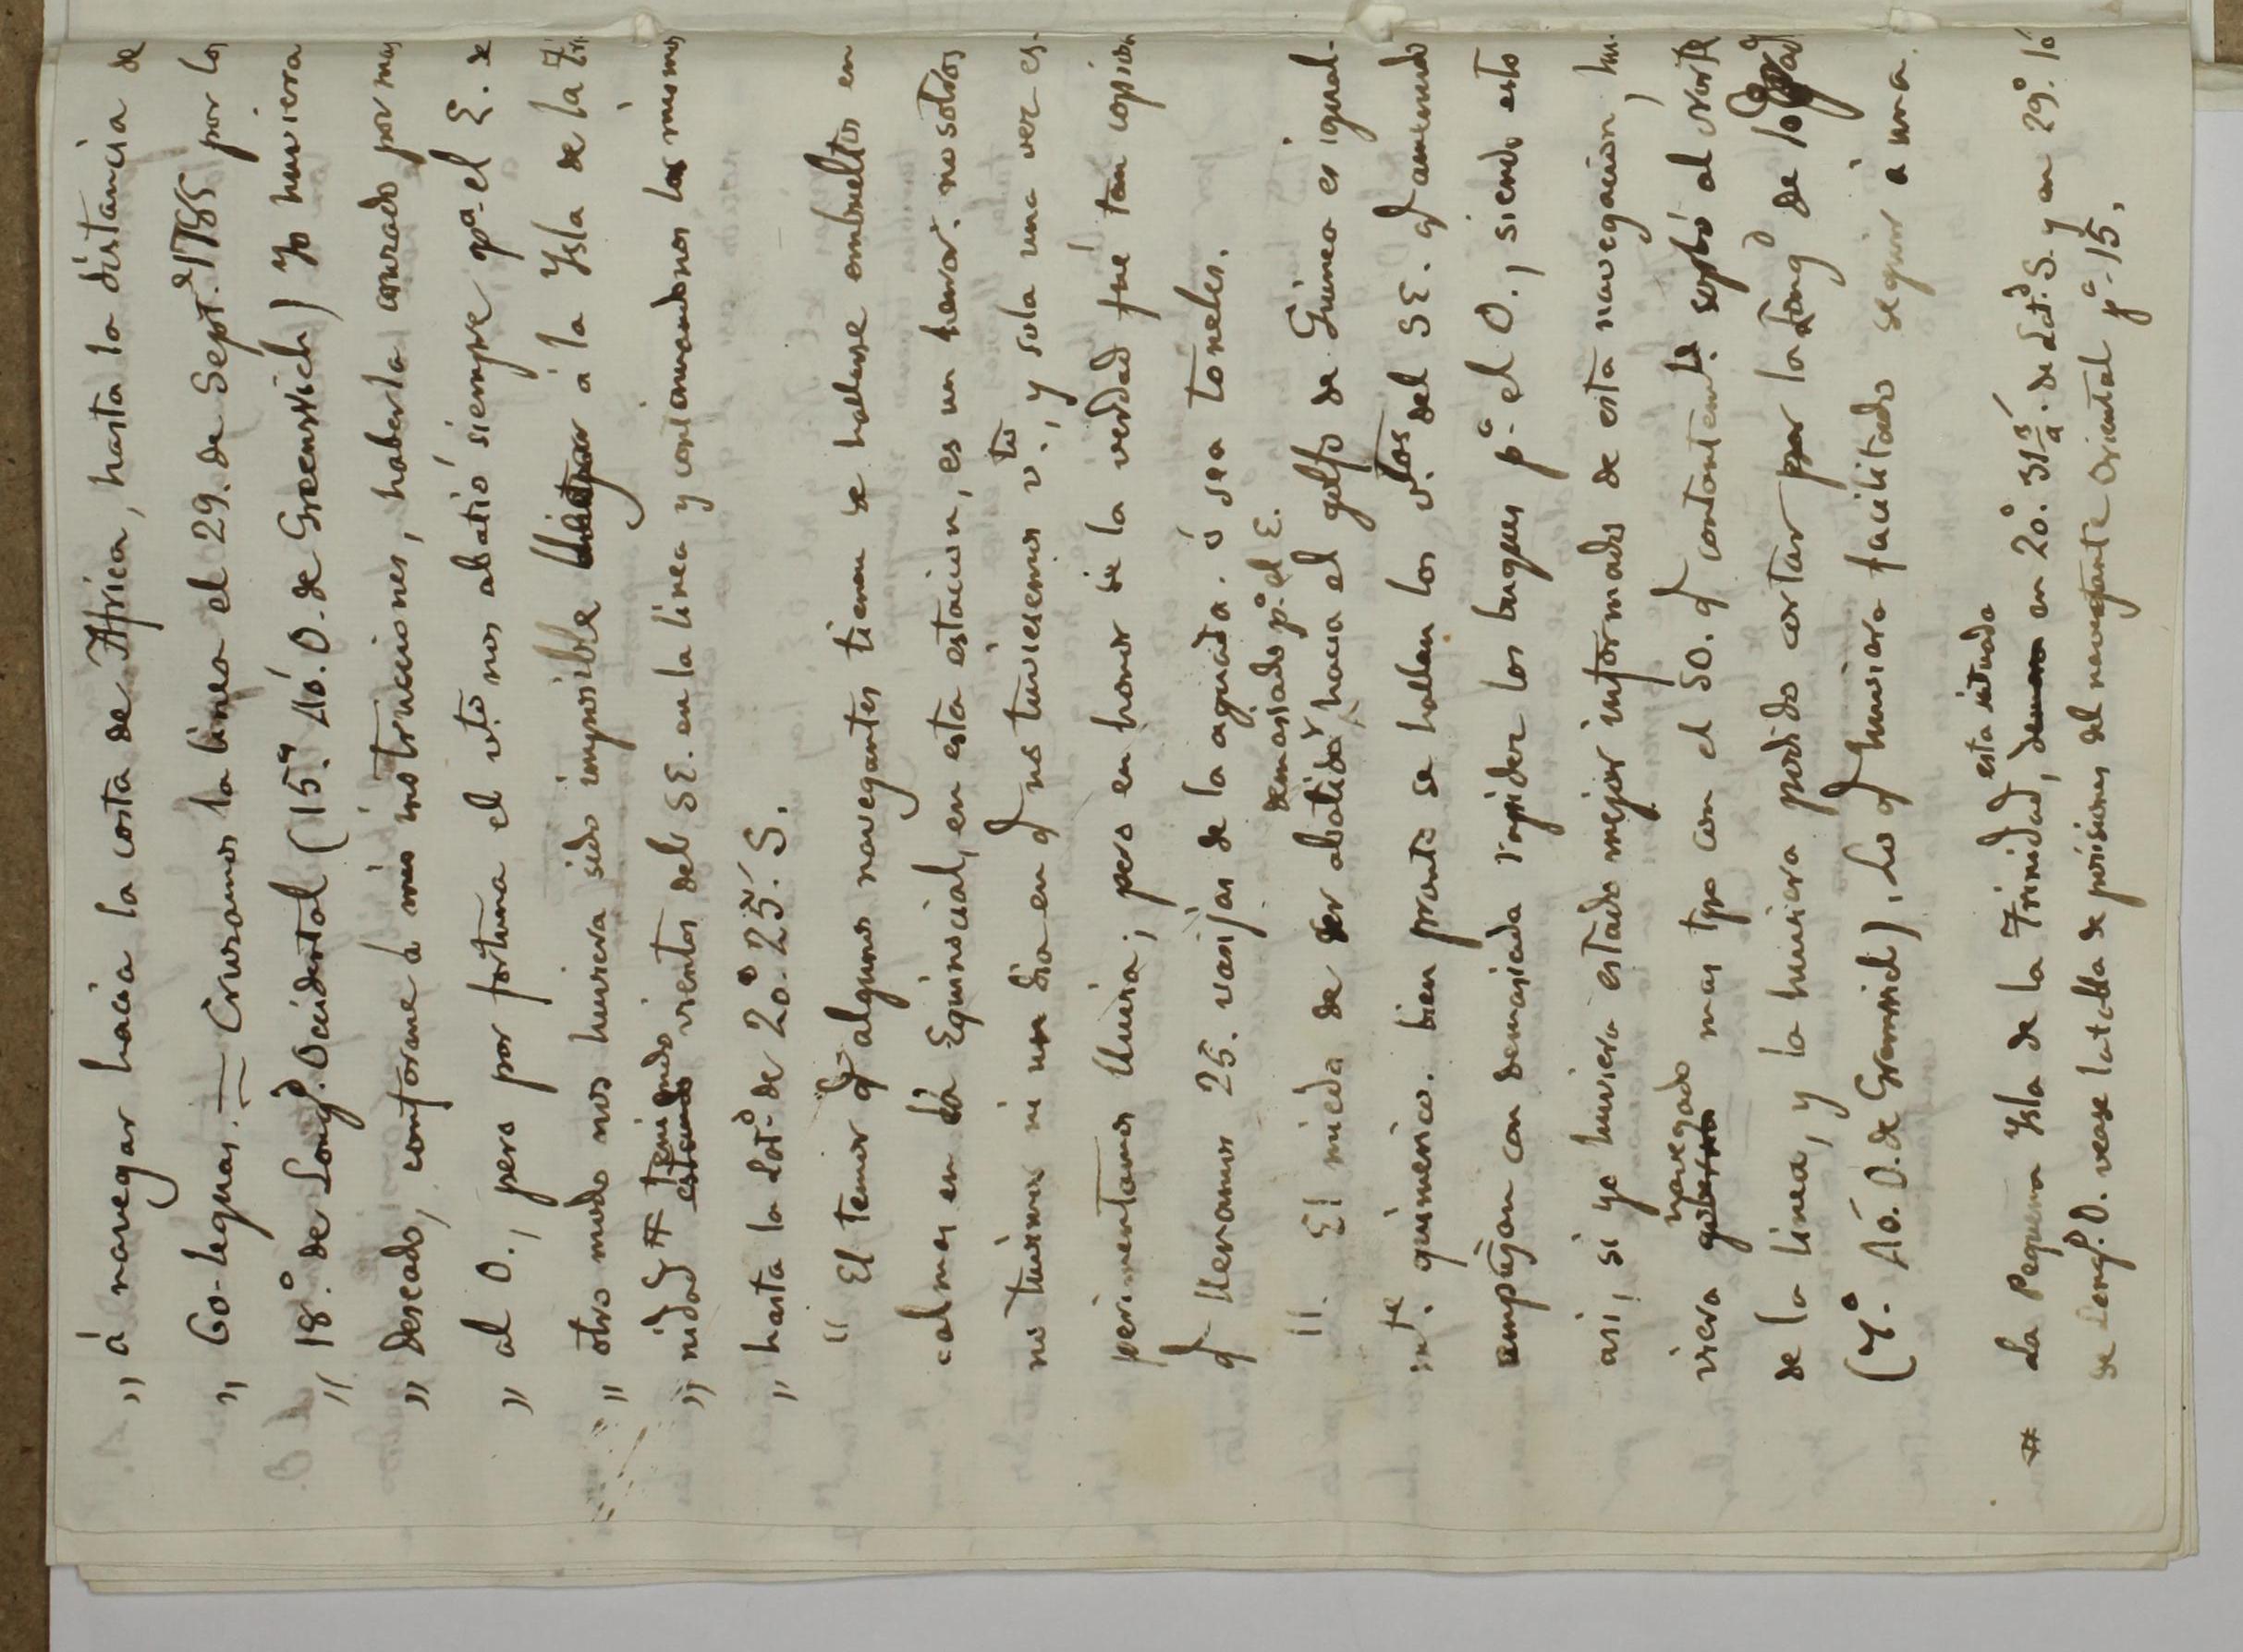 „ á navegar hacia la costa de Africa, hasta la distancia de
„ 60-leguas. = Cruzamos la linea el 29. de Septe. 1785 por los
„ 18°. de Longd. Occidental (15.° 40'. O. de Greenwich) yo huviera
„ deseado, conforme a mis instrucciones, haberla cortado por mas
„ al O., pero por fortuna el vto nos abatió siempre pa. el E. de
„ otro modo nos huviera sido imposible llegar á la Ysla de la Tri-
„ nidad # teniendo vientos del SE. en la linea y continuandonos los mismos
„ hasta la Latd. de 20.° 25'. S.
“ El temor qe algunos navegantes tienen de hallarse embueltos en
calmas en la Equinocial, en esta estacion, es un herror. nosotros
no tuvimos ni un dia en q no tuviesemos vto., y sola una vez es-
perimentamos lluvia; pero en honor de la verdad fue tan copiosa
q llenamos 25. vasijas de la aguada. ó sea toneles.
demasiado pa. el E.
“. El miedo de ser abatidos hacia el golfo de Guinea es igual-
mte. quimerico. bien pronto se hallan los vtos del SE. q
empujan con demasiada rapidez los buques pa. el O., siendo esto
asi, si yo huviera estado mejor informado de esta navegacion, hu-
navegado
viera mas tpo con el SO. q sopló al Norte
de la linea, y la huviera podido cortar por la Longd de 10 Grad
(7.° 40'. O. de Greenwich). Lo q huviera facilitado seguir á una
esta situada
# La Pequeña Ysla de la Trinidad, en 20°. 31'. de Latd. S. y en 29°. 10'
de Longd. O. vease la tabla de posiciones del navegante Oriental pa. 15.